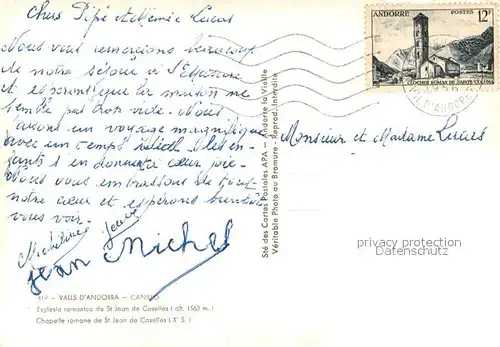 Chers Pépé et Mémée Lucas
Nous vous remercions beaucoup
de notre séjour à
et espérons que la maison ne
semble pas trop vide. Nous
avons un voyage magnifique
avec un temps idéal. Les en-
fants s en donnent à cœur joie.
Nous vous embrassons de tout
notre cœur et espérons bientôt
vous voir.
Micheline
Jean Michel
ANDORRE POSTES 12F
CLOCHER ROMAN DE SAINTE-COLOMA
Monsieur et Madame Lucas
Sté des Cartes Postales APA — Andorre la Vieille
Véritable Photo au Bromure - Reprod. Interdite
privacy protection
Datenschutz
419 - VALLS D'ANDORRA - CANILLO
Esglesia romanica de St Joan de Caselles ( alt. 1560 m. )
Chapelle romane de St Jean de Caselles ( X° S. )